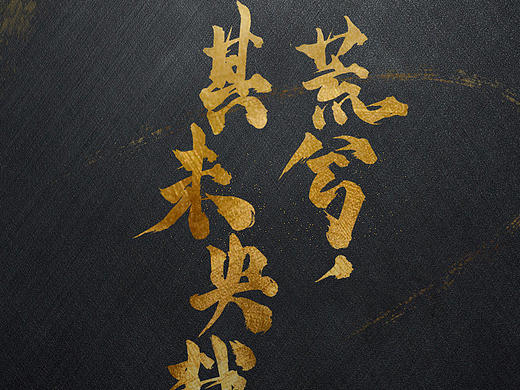 荒兮，
其未央